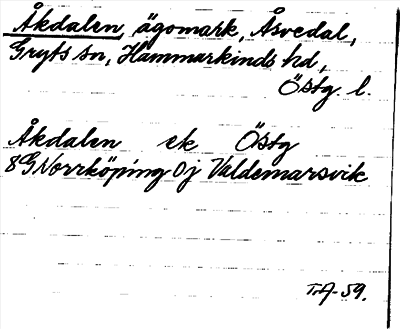 Åkdalen, ägomark, Åsvedal,
Gryts sn, Hammarkinds hd,
Östg. l.
Åkdalen ek Östg
8G Norrköping 0j Valdemarsvik
T.A-59.